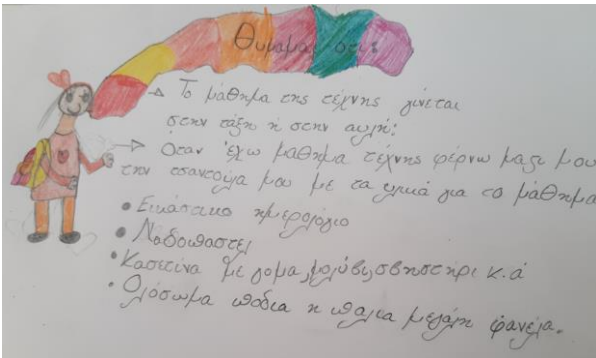 Θυμάμαι ότι:
Το μάθημα της τέχνης γίνεται
στην τάξη ή στην αυλή:
Όταν έχω μάθημα τέχνης φέρνω μαζι μου
την τσαντούλα μου με τα υλικά για το μάθημα
• Εικάστικο ημερολόγιο
• Λαδοπαστελ
• Κασετίνα με γομα, μολύβι, σβηστήρι κ.ά
• Ολόσωμα ποδια η παλια μεγάλη φανέλα.